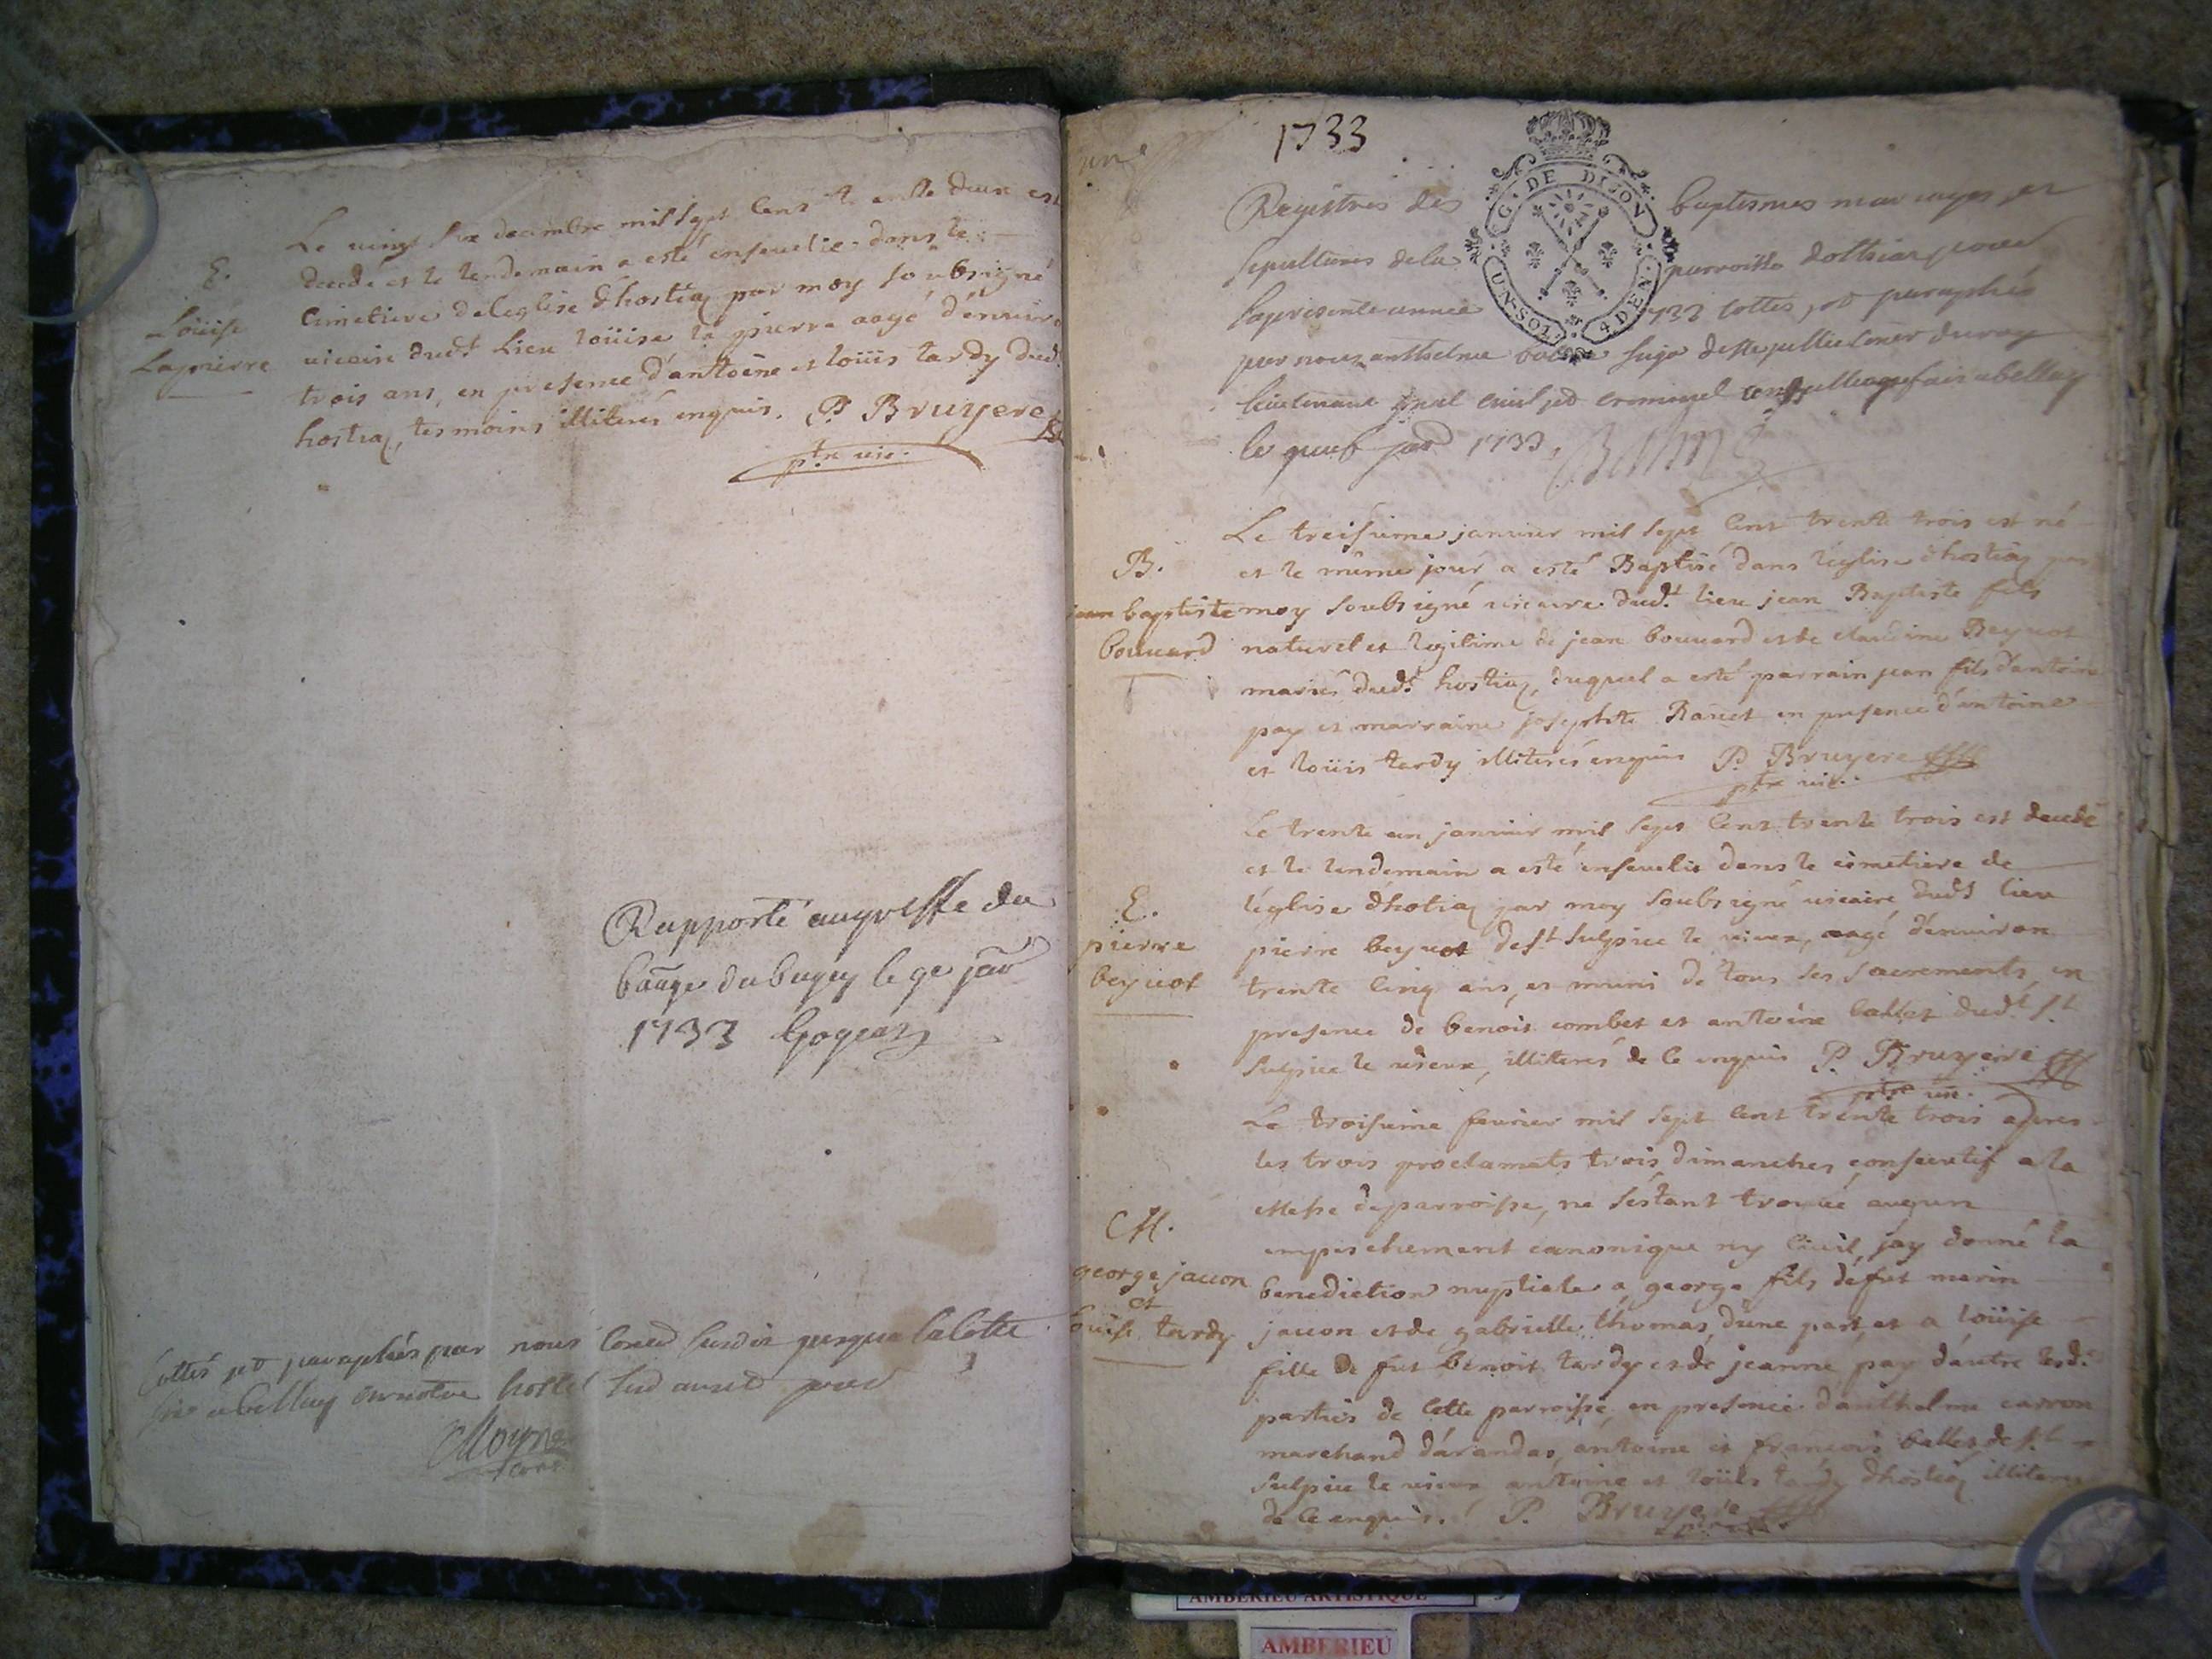 E.
Loüise
Lapierre
Le vingt six decembre mil sept cens trente deux est
decedé et le lendemain a esté ensevelie dans le
cimetiere de leglise d'hostiaz par moy soubsigné
vicaire dudt lieu loüise la pierre aagé d'environ
trois ans, en presence d'antoine et loüis tardy dudt
hostiaz, tesmoins illiterés enquis. P. Bruyere
ptre vic.
Rapporté au greffe du
bauge du bugey le 9e janr
1733
Cottés et paraphés par nous susdit jusqua la cotte
a Belley en notre hostel
Moyne
1733
G. DE DIJON
UN SOL. 4 DEN.
Registres des baptismes mariages et
sepultures de la parroisse dostiaz pour
la presente année 1733 cottés et paraphés
par nous anthelme
lieutenant gnal civil et criminel fait a belley
le neuf janr 1733.
B.
jean baptiste
bouvard
Le treisieme janvier mil sept cent trente trois est né
et le même jour a esté Baptisé dans l'eglise d'hostiaz par
moy soubsigné vicaire dudt lieu jean Baptiste fils
naturel et legitime de jean bouvard et de claudine Beynot
mariés dudt hostiaz, duquel a esté parrain jean fils d'antoine
pay et marraine josephte en presence d'antoine
et loüis tardy illiterés enquis P. Bruyere
ptre vic.
E.
pierre
beynot
Le trente un janvier mil sept cent trente trois est decedé
et le lendemain a esté ensevelis dans le cimetiere de
l'église d'hotiaz par moy soubsigné vicaire dudt lieu
pierre beynot de st sulpice le vieux, aagé d'environ
trente cinq ans, et muni de tous ses sacrements, en
presence de benoit combet et antoine ballet dudt st
sulpice le vieux, illiterés de ce enquis P. Bruyere
ptre vic.
M.
george jacson
et
louise tardy
Le troisieme fevrier mil sept cent trente trois apres
les trois proclamats trois dimanches consecutif a la
Messe de parroisse, ne s'estant trouvé aucun
empeschement canonique ny civil, j'ay donné la
benediction nuptiale a george fils de fut marin
jacson et de gabrielle thomas d'une part, et a loüise
fille de fut benoit tardy et de jeanne pay d'autre lesd.
parties de cette parroisse en presence d'anthelme carron
marchand d'arandas, antoine et francois ballet de st
sulpice le vieux antoine et loüis tardy d'hostiaz illiterés
de ce enquis. P. Bruyere
ptre vic.
AMBERIEU ARTISTIQUE
AMBERIEU